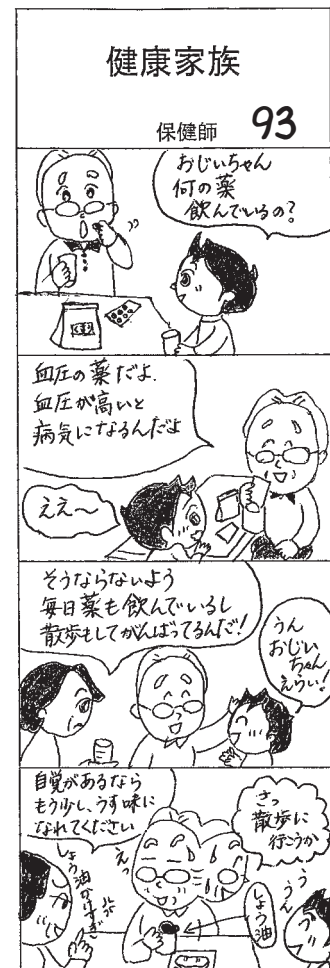 健康家族
保健師 93
おじいちゃん
何の薬
飲んでいるの?
薬
血圧の薬だよ.
血圧が高いと
病気になるんだよ
ええ〜
そうならないよう
毎日薬も飲んでいるし
散歩もしてがんばってるんだ!
うん
おじい
ちゃん
えらい!
自覚があるなら
もう少し、うす味に
なれてください
さっ
散歩に
行こうか
えっ
しょう油かけすぎ
しょう油
うん
うん